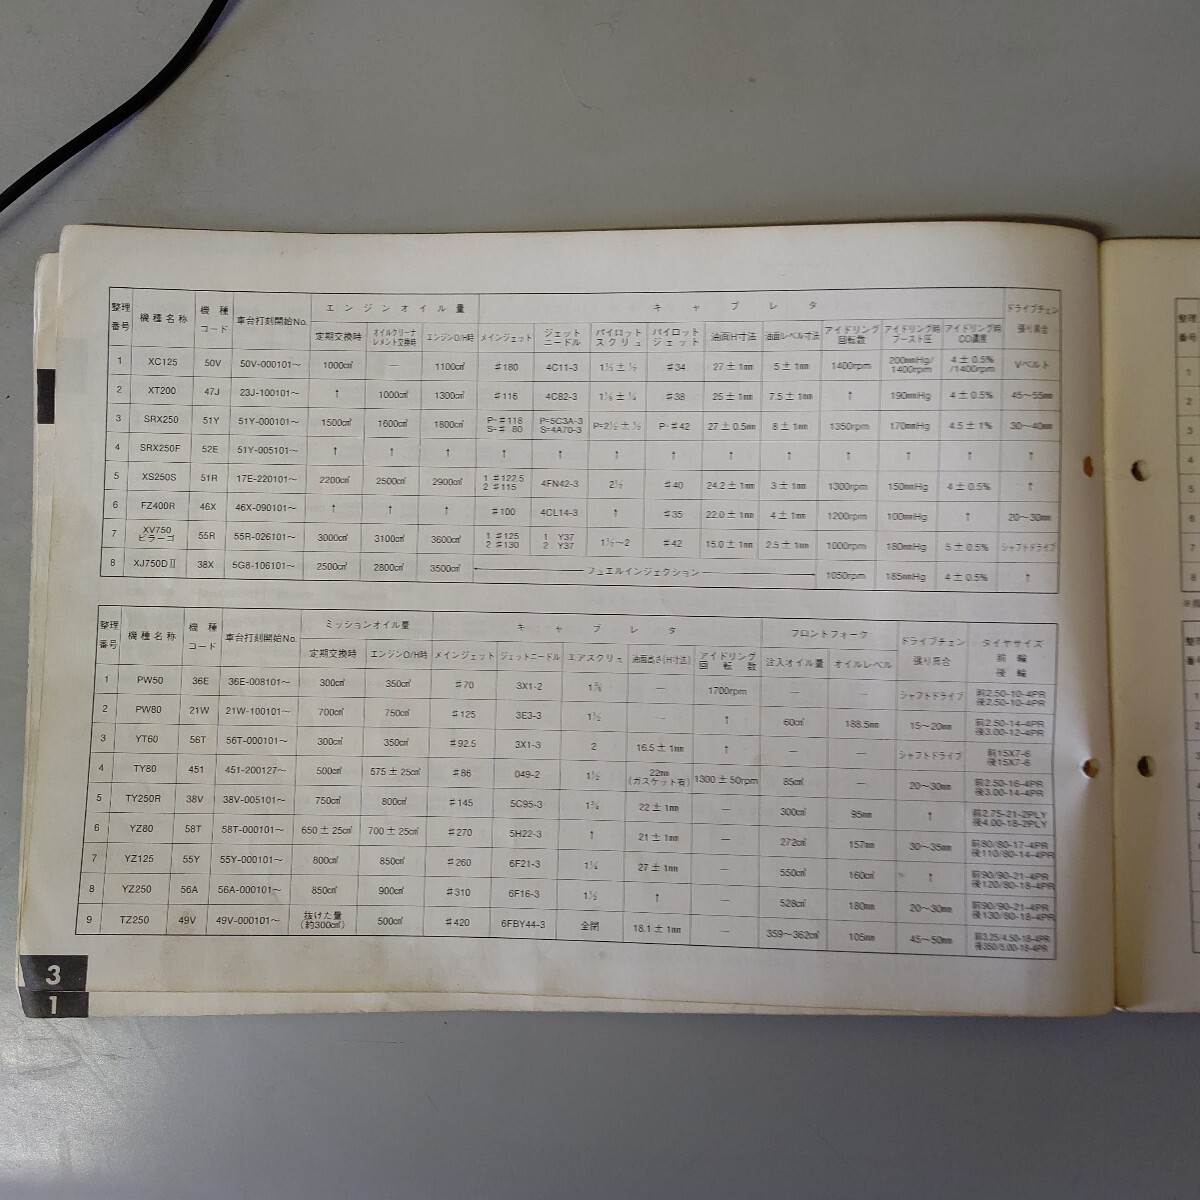 整理番号 機種名称 機種コード 車台打刻開始No. エンジンオイル量 キャブレタ ドライブチェン張り具合
定期交換時 オイルクリーナエレメント交換時 エンジンO/H時 メインジェット ジェットニードル パイロットスクリュ パイロットジェット 油面H寸法 油面レベル寸法 アイドリング回転数 アイドリング時ブースト圧 アイドリング時CO濃度
1 XC125 50V 50V-000101～ 1000㎤ — 1100㎤ ♯180 4C11-3 1½±½ ♯34 27±1㎜ 5±1㎜ 1400rpm 200㎜Hg/1400rpm 4±0.5%/1400rpm Vベルト
2 XT200 47J 23J-100101～ ↑ 1000㎤ 1300㎤ ♯116 4C82-3 ♯38 25±1㎜ 7.5±1㎜ ↑ 190㎜Hg 4±0.5% 45～55㎜
3 SRX250 51Y 51Y-000101～ 1500㎤ 1600㎤ 1800㎤ P=♯118 S=♯80 P=5C3A-3 S=4A70-3 P=2½±½ P=♯42 27±0.5㎜ 8±1㎜ 1350rpm 170㎜Hg 4.5±1% 30～40㎜
4 SRX250F 52E 51Y-005101～ ↑ ↑ ↑ ↑ ↑ ↑ ↑ ↑ ↑ ↑ ↑ ↑ ↑
5 XS250S 51R 17E-220101～ 2200㎤ 2500㎤ 2900㎤ 1 ♯122.5 2 ♯115 4FN42-3 2½ ♯40 24.2±1㎜ 3±1㎜ 1300rpm 150㎜Hg 4±0.5% ↑
6 FZ400R 46X 46X-090101～ ↑ ↑ ↑ ♯100 4CL14-3 ↑ ♯35 22.0±1㎜ 4±1㎜ 1200rpm 100㎜Hg ↑ 20～30㎜
7 XV750ビラーゴ 55R 55R-026101～ 3000㎤ 3100㎤ 3600㎤ 1 ♯125 2 ♯130 1 Y37 2 Y37 1½～2 ♯42 15.0±1㎜ 2.5±1㎜ 1000rpm 180㎜Hg 5±0.5% シャフトドライブ
8 XJ750DⅡ 38X 5G8-106101～ 2500㎤ 2800㎤ 3500㎤ フュエルインジェクション 1050rpm 185㎜Hg 4±0.5% ↑
整理番号 機種名称 機種コード 車台打刻開始No. ミッションオイル量 キャブレタ フロントフォーク ドライブチェン張り具合 タイヤサイズ前輪後輪
定期交換時 エンジンO/H時 メインジェット ジェットニードル エアスクリュ 油面高さ(H寸法) アイドリング回転数 注入オイル量 オイルレベル
1 PW50 36E 36E-008101～ 300㎤ 350㎤ ♯70 3X1-2 — 1700rpm — — シャフトドライブ 前2.50-10-4PR 後2.50-10-4PR
2 PW80 21W 21W-100101～ 700㎤ 750㎤ ♯125 3E3-3 1½ — ↑ 60㎤ 188.5㎜ 15～20㎜ 前2.50-14-4PR 後3.00-12-4PR
3 YT60 56T 56T-000101～ 300㎤ 350㎤ ♯92.5 3X1-3 2 16.5±1㎜ ↑ — — シャフトドライブ 前15X7-6 後15X7-6
4 TY80 451 451-200127～ 500㎤ 575±25㎤ ♯86 049-2 1½ 22㎜(ガスケット有) 1300±50rpm 85㎤ — 20～30㎜ 前2.50-16-4PR 後3.00-14-4PR
5 TY250R 38V 38V-005101～ 750㎤ 800㎤ ♯145 5C95-3 1¾ 22±1㎜ — 300㎤ 95㎜ ↑ 前2.75-21-2PLY 後4.00-18-2PLY
6 YZ80 58T 58T-000101～ 650±25㎤ 700±25㎤ ♯270 5H22-3 ↑ 21±1㎜ — 272㎤ 157㎜ 30～35㎜ 前80/80-17-4PR 後110/80-14-4PR
7 YZ125 55Y 55Y-000101～ 800㎤ 850㎤ ♯260 6F21-3 1¼ 27±1㎜ — 550㎤ 160㎤ ↑ 前90/90-21-4PR 後120/80-18-4PR
8 YZ250 56A 56A-000101～ 850㎤ 900㎤ ♯310 6F16-3 1½ ↑ — 528㎤ 180㎜ 20～30㎜ 前90/90-21-4PR 後130/80-18-4PR
9 TZ250 49V 49V-000101～ 抜けた量(約300㎤) 500㎤ ♯420 6FBY44-3 全閉 18.1±1㎜ — 359～362㎤ 105㎜ 45～50㎜ 前3.25/4.50-18-4PR 後350/5.00-18-4PR
3
1
整理番号
1
2
3
4
5
6
7
8